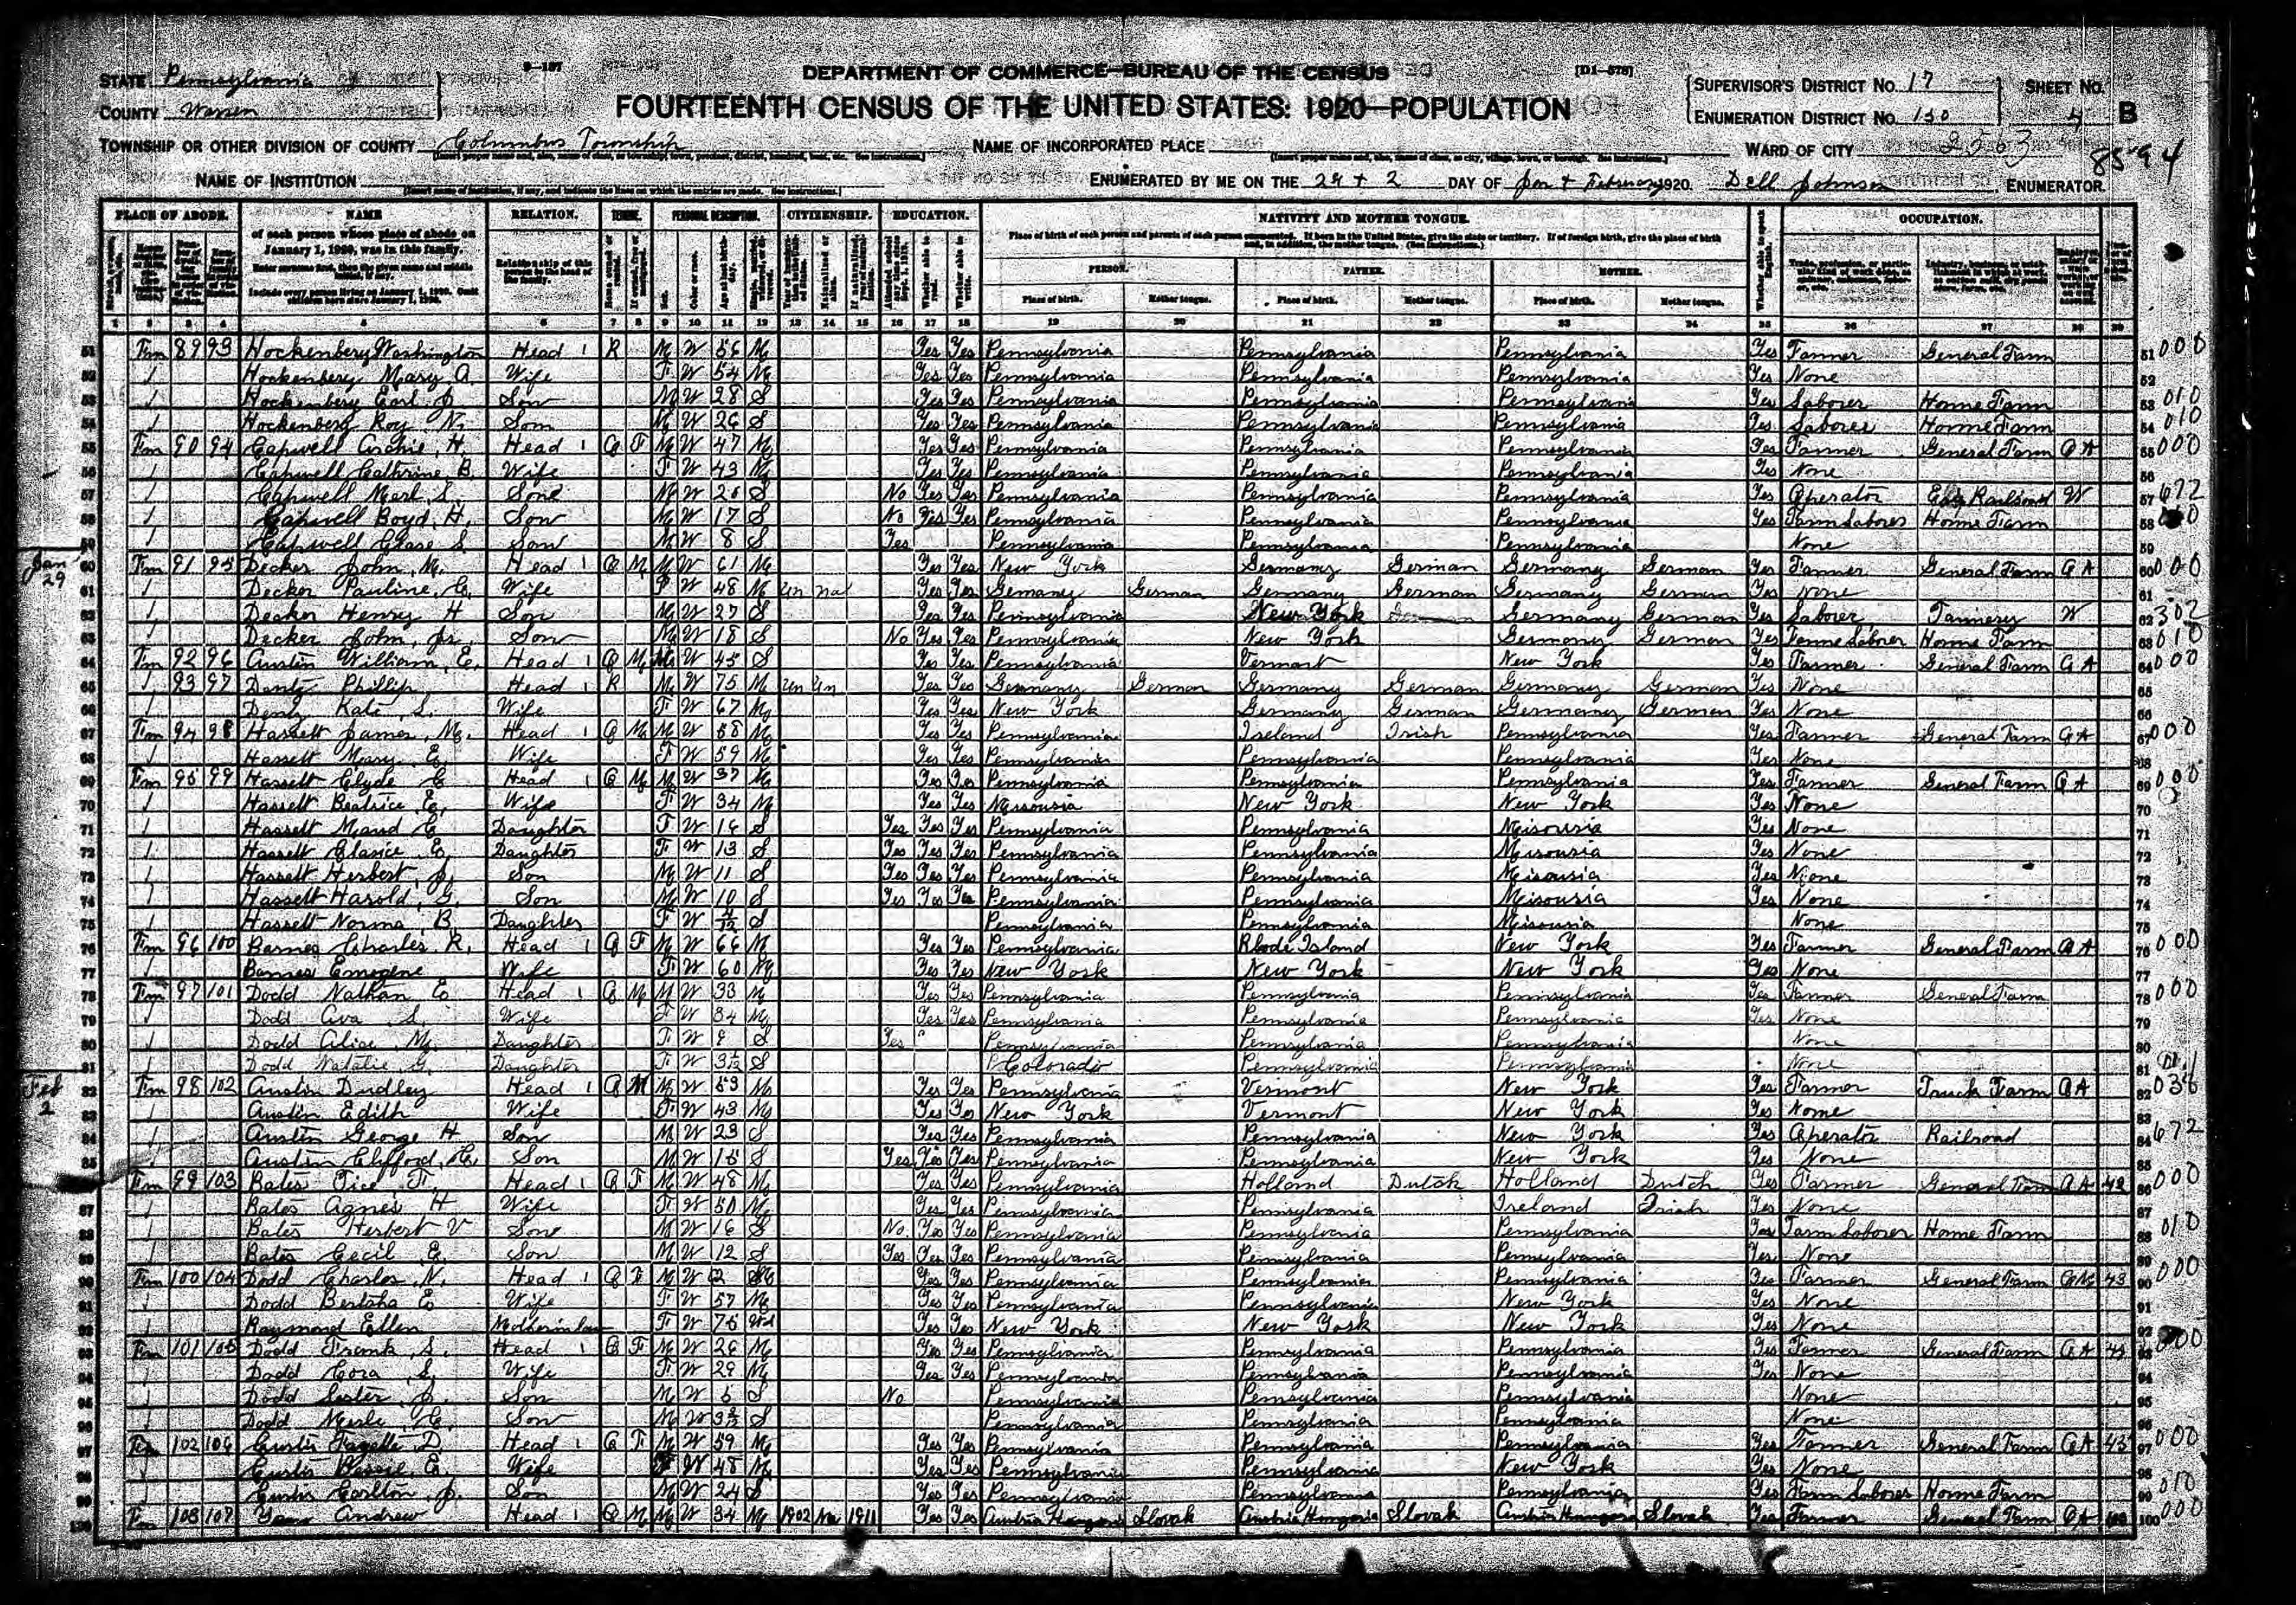 STATE Pennsylvania
COUNTY Warren
9-137
DEPARTMENT OF COMMERCE—BUREAU OF THE CENSUS
[D1-578]
FOURTEENTH CENSUS OF THE UNITED STATES: 1920—POPULATION
SUPERVISOR'S DISTRICT No. 17
ENUMERATION DISTRICT No. 130
SHEET No. 4 B
TOWNSHIP OR OTHER DIVISION OF COUNTY Columbus Township
NAME OF INCORPORATED PLACE
WARD OF CITY
2563
8594
NAME OF INSTITUTION
ENUMERATED BY ME ON THE 29 + 2 DAY OF Jan + February 1920. Dell Johnson ENUMERATOR.
PLACE OF ABODE. NAME RELATION. TENURE. PERSONAL DESCRIPTION. CITIZENSHIP. EDUCATION. NATIVITY AND MOTHER TONGUE. OCCUPATION.
of each person whose place of abode on January 1, 1920, was in this family.
Enter surname first, then the given name and middle initial, if any.
Include every person living on January 1, 1920. Omit children born since January 1, 1920.
Relationship of this person to the head of the family.
Place of birth of each person and parents of each person enumerated. If born in the United States, give the state or territory. If of foreign birth, give the place of birth and, in addition, the mother tongue. (See Instructions.)
PERSON. FATHER. MOTHER.
Place of birth. Mother tongue. Place of birth. Mother tongue. Place of birth. Mother tongue.
1 2 3 4 5 6 7 8 9 10 11 12 13 14 15 16 17 18 19 20 21 22 23 24 25 26 27 28 29
51 Fm 89 93 Hockenbery Washington Head 1 R M W 56 M Yes Yes Pennsylvania Pennsylvania Pennsylvania Yes Farmer General Farm 51 000
52 Hockenbery Mary A. Wife F W 54 M Yes Yes Pennsylvania Pennsylvania Pennsylvania Yes None 52
53 Hockenbery Earl J. Son M W 28 S Yes Yes Pennsylvania Pennsylvania Pennsylvania Yes Laborer Home Farm 53 010
54 Hockenbery Roy Son M W 26 S Yes Yes Pennsylvania Pennsylvania Pennsylvania Yes Laborer Home Farm 54 010
55 Fm 90 94 Capwell Archie, H. Head 1 O F M W 47 M Yes Yes Pennsylvania Pennsylvania Pennsylvania Yes Farmer General Farm O A 55 000
56 Capwell Cathrine B. Wife F W 43 M Yes Yes Pennsylvania Pennsylvania Pennsylvania Yes None 56
57 Capwell Merl S. Son M W 20 S No Yes Yes Pennsylvania Pennsylvania Pennsylvania Yes Operator Railroad W 57 672
58 Capwell Boyd, H. Son M W 17 S No Yes Yes Pennsylvania Pennsylvania Pennsylvania Yes Farm Laborer Home Farm 58
59 Capwell Clare S Son M W 8 S Yes Pennsylvania Pennsylvania Pennsylvania None 59
Jan 29
60 Fm 91 95 Decker John, M. Head 1 O M M W 61 M Yes Yes New York Germany German Germany German Yes Farmer General Farm O A 60 000
61 Decker Pauline, C. Wife F W 48 M Un Nat Yes Yes Germany German Germany German Germany German Yes None 61
62 Decker Henry H Son M W 27 S Yes Yes Pennsylvania New York Germany German Yes Laborer Tannery W 62 302
63 Decker John, Jr. Son M W 18 S No Yes Yes Pennsylvania New York Germany German Yes Farm Laborer Home Farm 63 010
64 Fm 92 96 Austin William, E. Head 1 O M M W 45 S Yes Yes Pennsylvania Vermont New York Yes Farmer General Farm O A 64 000
65 93 97 Dentz Phillip Head 1 R M W 75 M Un Un Yes Yes Germany German Germany German Germany German Yes None 65
66 Dentz Kate, S. Wife F W 67 M Yes Yes New York Germany German Germany German Yes None 66
67 Fm 94 98 Hassett James, M. Head 1 O M M W 58 M Yes Yes Pennsylvania Ireland Irish Pennsylvania Yes Farmer General Farm O A 67 000
68 Hassett Mary E. Wife F W 59 M Yes Yes Pennsylvania Pennsylvania Pennsylvania Yes None 68
69 Fm 95 99 Hassett Clyde C Head 1 O M M W 37 M Yes Yes Pennsylvania Pennsylvania Pennsylvania Yes Farmer General Farm O A 69 000
70 Hassett Beatrice E. Wife F W 34 M Yes Yes Missouria New York New York Yes None 70
71 Hassett Maud C Daughter F W 16 S Yes Yes Yes Pennsylvania Pennsylvania Misouria Yes None 71
72 Hassett Clarice E. Daughter F W 13 S Yes Yes Yes Pennsylvania Pennsylvania Misouria Yes None 72
73 Hassett Herbert J. Son M W 11 S Yes Yes Yes Pennsylvania Pennsylvania Misouria Yes None 73
74 Hassett Harold, G. Son M W 10 S Yes Yes Yes Pennsylvania Pennsylvania Misouria Yes None 74
75 Hassett Norma, B. Daughter F W S Pennsylvania Pennsylvania Misouria None 75
76 Fm 96 100 Barnes Charles R. Head 1 O F M W 66 M Yes Yes Pennsylvania Rhode Island New York Yes Farmer General Farm O A 76 000
77 Barnes Emogene Wife F W 60 M Yes Yes New York New York New York Yes None 77
78 Fm 97 101 Dodd Nathan E Head 1 O M M W 33 M Yes Yes Pennsylvania Pennsylvania Pennsylvania Yes Farmer General Farm 78 000
79 Dodd Ava S. Wife F W 34 M Yes Yes Pennsylvania Pennsylvania Pennsylvania Yes None 79
80 Dodd Alice, M. Daughter F W S Yes Pennsylvania Pennsylvania Pennsylvania None 80
81 Dodd Natalie G. Daughter F W S Colorado Pennsylvania Pennsylvania None 81
Feb 2
82 Fm 98 102 Austin Dudley Head 1 O M M W 53 M Yes Yes Pennsylvania Vermont New York Yes Farmer Truck Farm O A 82 038
83 Austin Edith Wife F W 43 M Yes Yes New York Vermont New York Yes None 83
84 Austin George H Son M W 23 S Yes Yes Pennsylvania Pennsylvania New York Yes Operator Railroad 84 672
85 Austin Clifford, C. Son M W 15 S Yes Yes Yes Pennsylvania Pennsylvania New York Yes None 85
86 Fm 99 103 Bates Tice F. Head 1 O F M W 48 M Yes Yes Pennsylvania Holland Dutch Holland Dutch Yes Farmer General Farm O A 42 86 000
87 Bates Agnes H Wife F W 50 M Yes Yes Pennsylvania Pennsylvania Ireland Irish Yes None 87
88 Bates Herbert V Son M W 16 S No Yes Yes Pennsylvania Pennsylvania Pennsylvania Yes Farm Laborer Home Farm 88 010
89 Bates Cecil E. Son M W 12 S Yes Yes Yes Pennsylvania Pennsylvania Pennsylvania Yes None 89
90 Fm 100 104 Dodd Charles N. Head 1 O F M W Yes Yes Pennsylvania Pennsylvania Pennsylvania Yes Farmer General Farm 43 90 000
91 Dodd Bertaha E Wife F W 57 M Yes Yes Pennsylvania Pennsylvania New York Yes None 91
92 Raymond Ellen Motherinlaw F W 75 Wd Yes Yes New York New York New York Yes None 92
93 Fm 101 105 Dodd Frank, S. Head 1 O F M W 26 M Yes Yes Pennsylvania Pennsylvania Pennsylvania Yes Farmer General Farm O A 93 000
94 Dodd Cora S. Wife F W 29 M Yes Yes Pennsylvania Pennsylvania Pennsylvania Yes None 94
95 Dodd Lester J. Son M W 5 S No Pennsylvania Pennsylvania Pennsylvania None 95
96 Dodd Merle C. Son M W S Pennsylvania Pennsylvania Pennsylvania None 96
97 Fm 102 106 Curtis Fayette D. Head 1 O F M W 59 M Yes Yes Pennsylvania Pennsylvania Pennsylvania Yes Farmer General Farm O A 45 97 000
98 Curtis Bessie, E. Wife F W 48 M Yes Yes Pennsylvania Pennsylvania New York Yes None 98
99 Curtis Carlton J. Son M W 24 S Yes Yes Pennsylvania Pennsylvania Pennsylvania Yes Farm Laborer Home Farm 99 010
100 Fm 103 107 Andrew Head 1 O M M W 34 M 1902 Na 1911 Yes Yes Austria Hungaria Slovak Austria Hungaria Slovak Austria Hungaria Slovak Yes Farmer General Farm O A 100 000